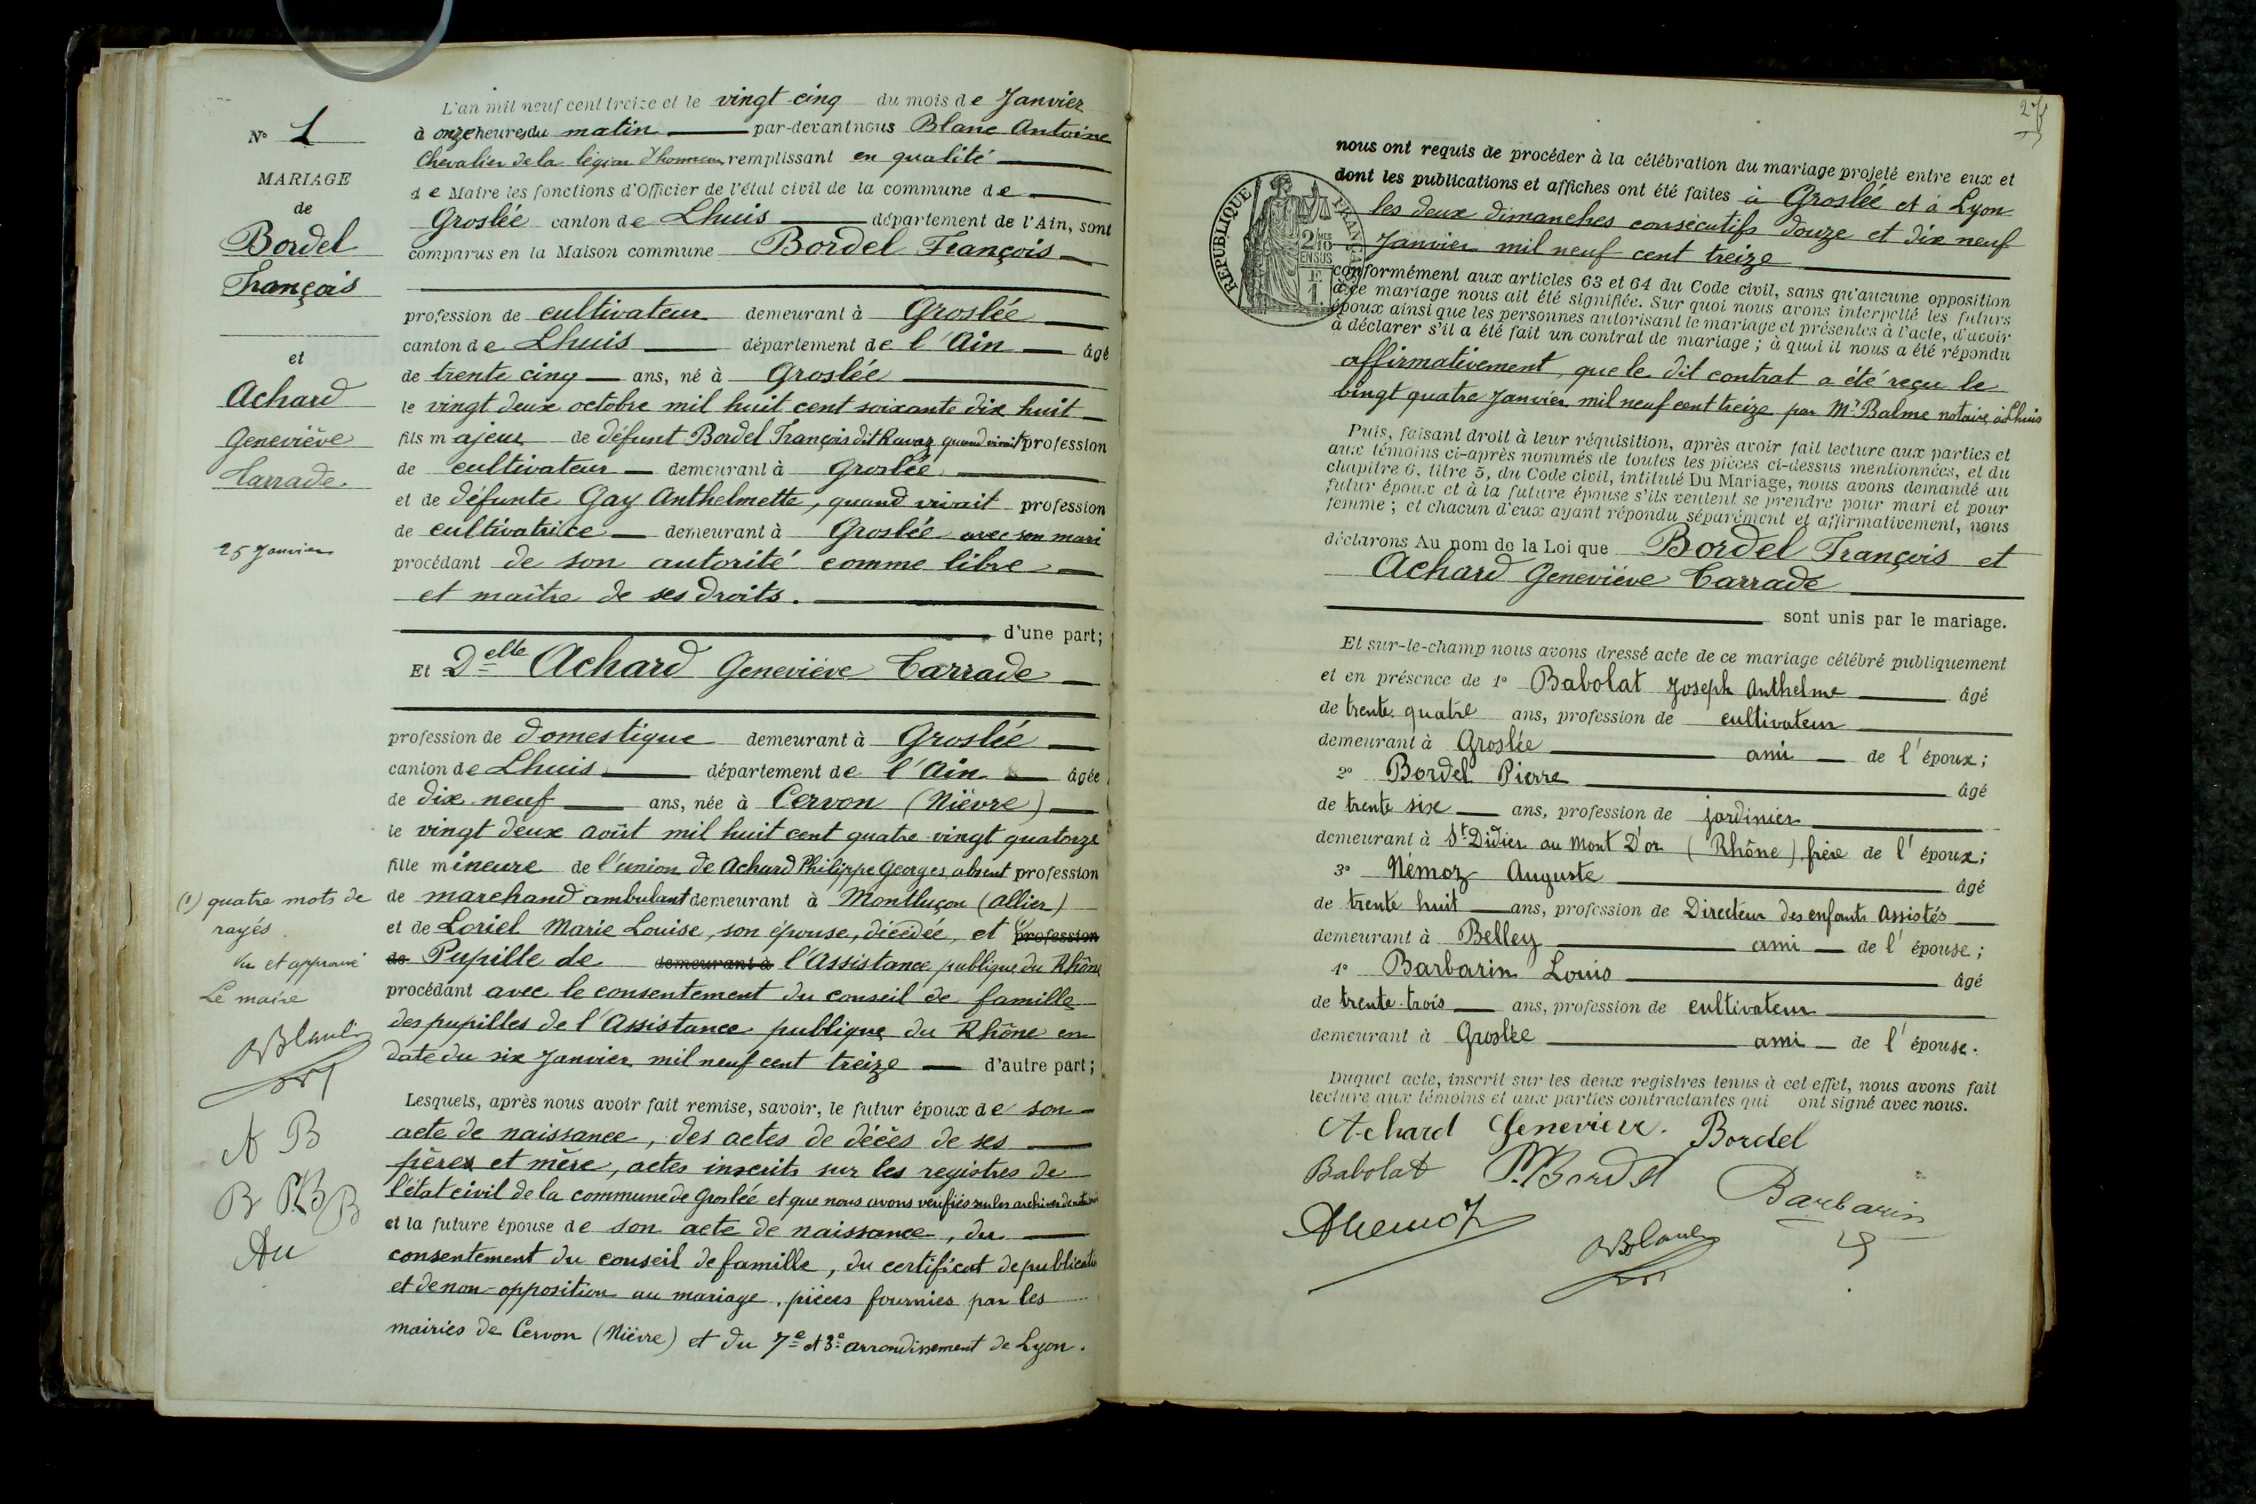 N° 1
MARIAGE
de
Bordel
François
et
Achard
Geneviève
Tarrade.
25 Janvier
(1) quatre mots de
rayés.
Vu et approuvé
Le maire
ABlanc
A B
B PB B
An
L'an mil neuf cent treize et le vingt-cinq du mois de Janvier
à onze heures du matin par-devant nous Blanc Antoine
Chevalier de la légion d'honneur remplissant en qualité
de Maire les fonctions d'Officier de l'état civil de la commune de
Groslée canton de Lhuis département de l'Ain, sont
comparus en la Maison commune Bordel François
profession de cultivateur demeurant à Groslée
canton de Lhuis département de l'Ain âgé
de trente cinq ans, né à Groslée
le vingt deux octobre mil huit cent soixante dix huit
fils majeur de défunt Bordel François dit Ravaz quand vivait profession
de cultivateur demeurant à Groslée
et de défunte Gay Anthelmette, quand vivait profession
de cultivatrice demeurant à Groslée avec son mari
procédant de son autorité comme libre
et maître de ses droits.
d'une part;
Et Delle Achard Geneviève Tarrade
profession de domestique demeurant à Groslée
canton de Lhuis département de l'Ain âgée
de dix-neuf ans, née à Cervon (Nièvre)
le vingt deux août mil huit cent quatre-vingt quatorze
fille mineure de l'union de Achard Philippe Georges, absent profession
de marchand ambulant demeurant à Montluçon (Allier)
et de Loriel Marie Louise, son épouse, décédée, et (1) profession
de Pupille de demeurant à l'Assistance publique du Rhône
procédant avec le consentement du conseil de famille
des pupilles de l'Assistance publique du Rhône en
date du six Janvier mil neuf cent treize d'autre part;
Lesquels, après nous avoir fait remise, savoir, le futur époux de son
acte de naissance, des actes de décès de ses
père et mère, actes inscrits sur les registres de
l'état civil de la commune de Groslée et que nous avons vérifiés sur les archives
et la future épouse de son acte de naissance, du
consentement du conseil de famille, du certificat de publication
et de non-opposition au mariage, pièces fournies par les
mairies de Cervon (Nièvre) et du 7e et 3e arrondissement de Lyon.
27
RÉPUBLIQUE FRANÇAISE
2/10 MES
EN SUS
1 F.
nous ont requis de procéder à la célébration du mariage projeté entre eux et
dont les publications et affiches ont été faites à Groslée et à Lyon
les deux dimanches consécutifs douze et dix neuf
Janvier mil neuf cent treize
conformément aux articles 63 et 64 du Code civil, sans qu'aucune opposition
à ce mariage nous ait été signifiée. Sur quoi nous avons interpellé les futurs
époux ainsi que les personnes autorisant le mariage et présentes à l'acte, d'avoir
à déclarer s'il a été fait un contrat de mariage; à quoi il nous a été répondu
affirmativement, que le dit contrat a été reçu le
vingt quatre Janvier mil neuf cent treize par Me Balme notaire à Lhuis
Puis, faisant droit à leur réquisition, après avoir fait lecture aux parties et
aux témoins ci-après nommés de toutes les pièces ci-dessus mentionnées, et du
chapitre 6, titre 5, du Code civil, intitulé Du Mariage, nous avons demandé au
futur époux et à la future épouse s'ils veulent se prendre pour mari et pour
femme; et chacun d'eux ayant répondu séparément et affirmativement, nous
déclarons Au nom de la Loi que Bordel François et
Achard Geneviève Tarrade
sont unis par le mariage.
Et sur-le-champ nous avons dressé acte de ce mariage célébré publiquement
et en présence de 1° Babolat Joseph Anthelme âgé
de trente-quatre ans, profession de cultivateur
demeurant à Groslée ami de l'époux;
2° Bordel Pierre âgé
de trente six ans, profession de jardinier
demeurant à St Didier au Mont D'or (Rhône) frère de l'époux;
3° Némoz Auguste âgé
de trente huit ans, profession de Directeur des enfants Assistés
demeurant à Belley ami de l'épouse;
4° Barbarin Louis âgé
de trente-trois ans, profession de cultivateur
demeurant à Groslée ami de l'épouse.
Duquel acte, inscrit sur les deux registres tenus à cet effet, nous avons fait
lecture aux témoins et aux parties contractantes qui ont signé avec nous.
Achard Geneviève. Bordel
Babolat P. Bordel Barbarin
ANemoz
ABlanc